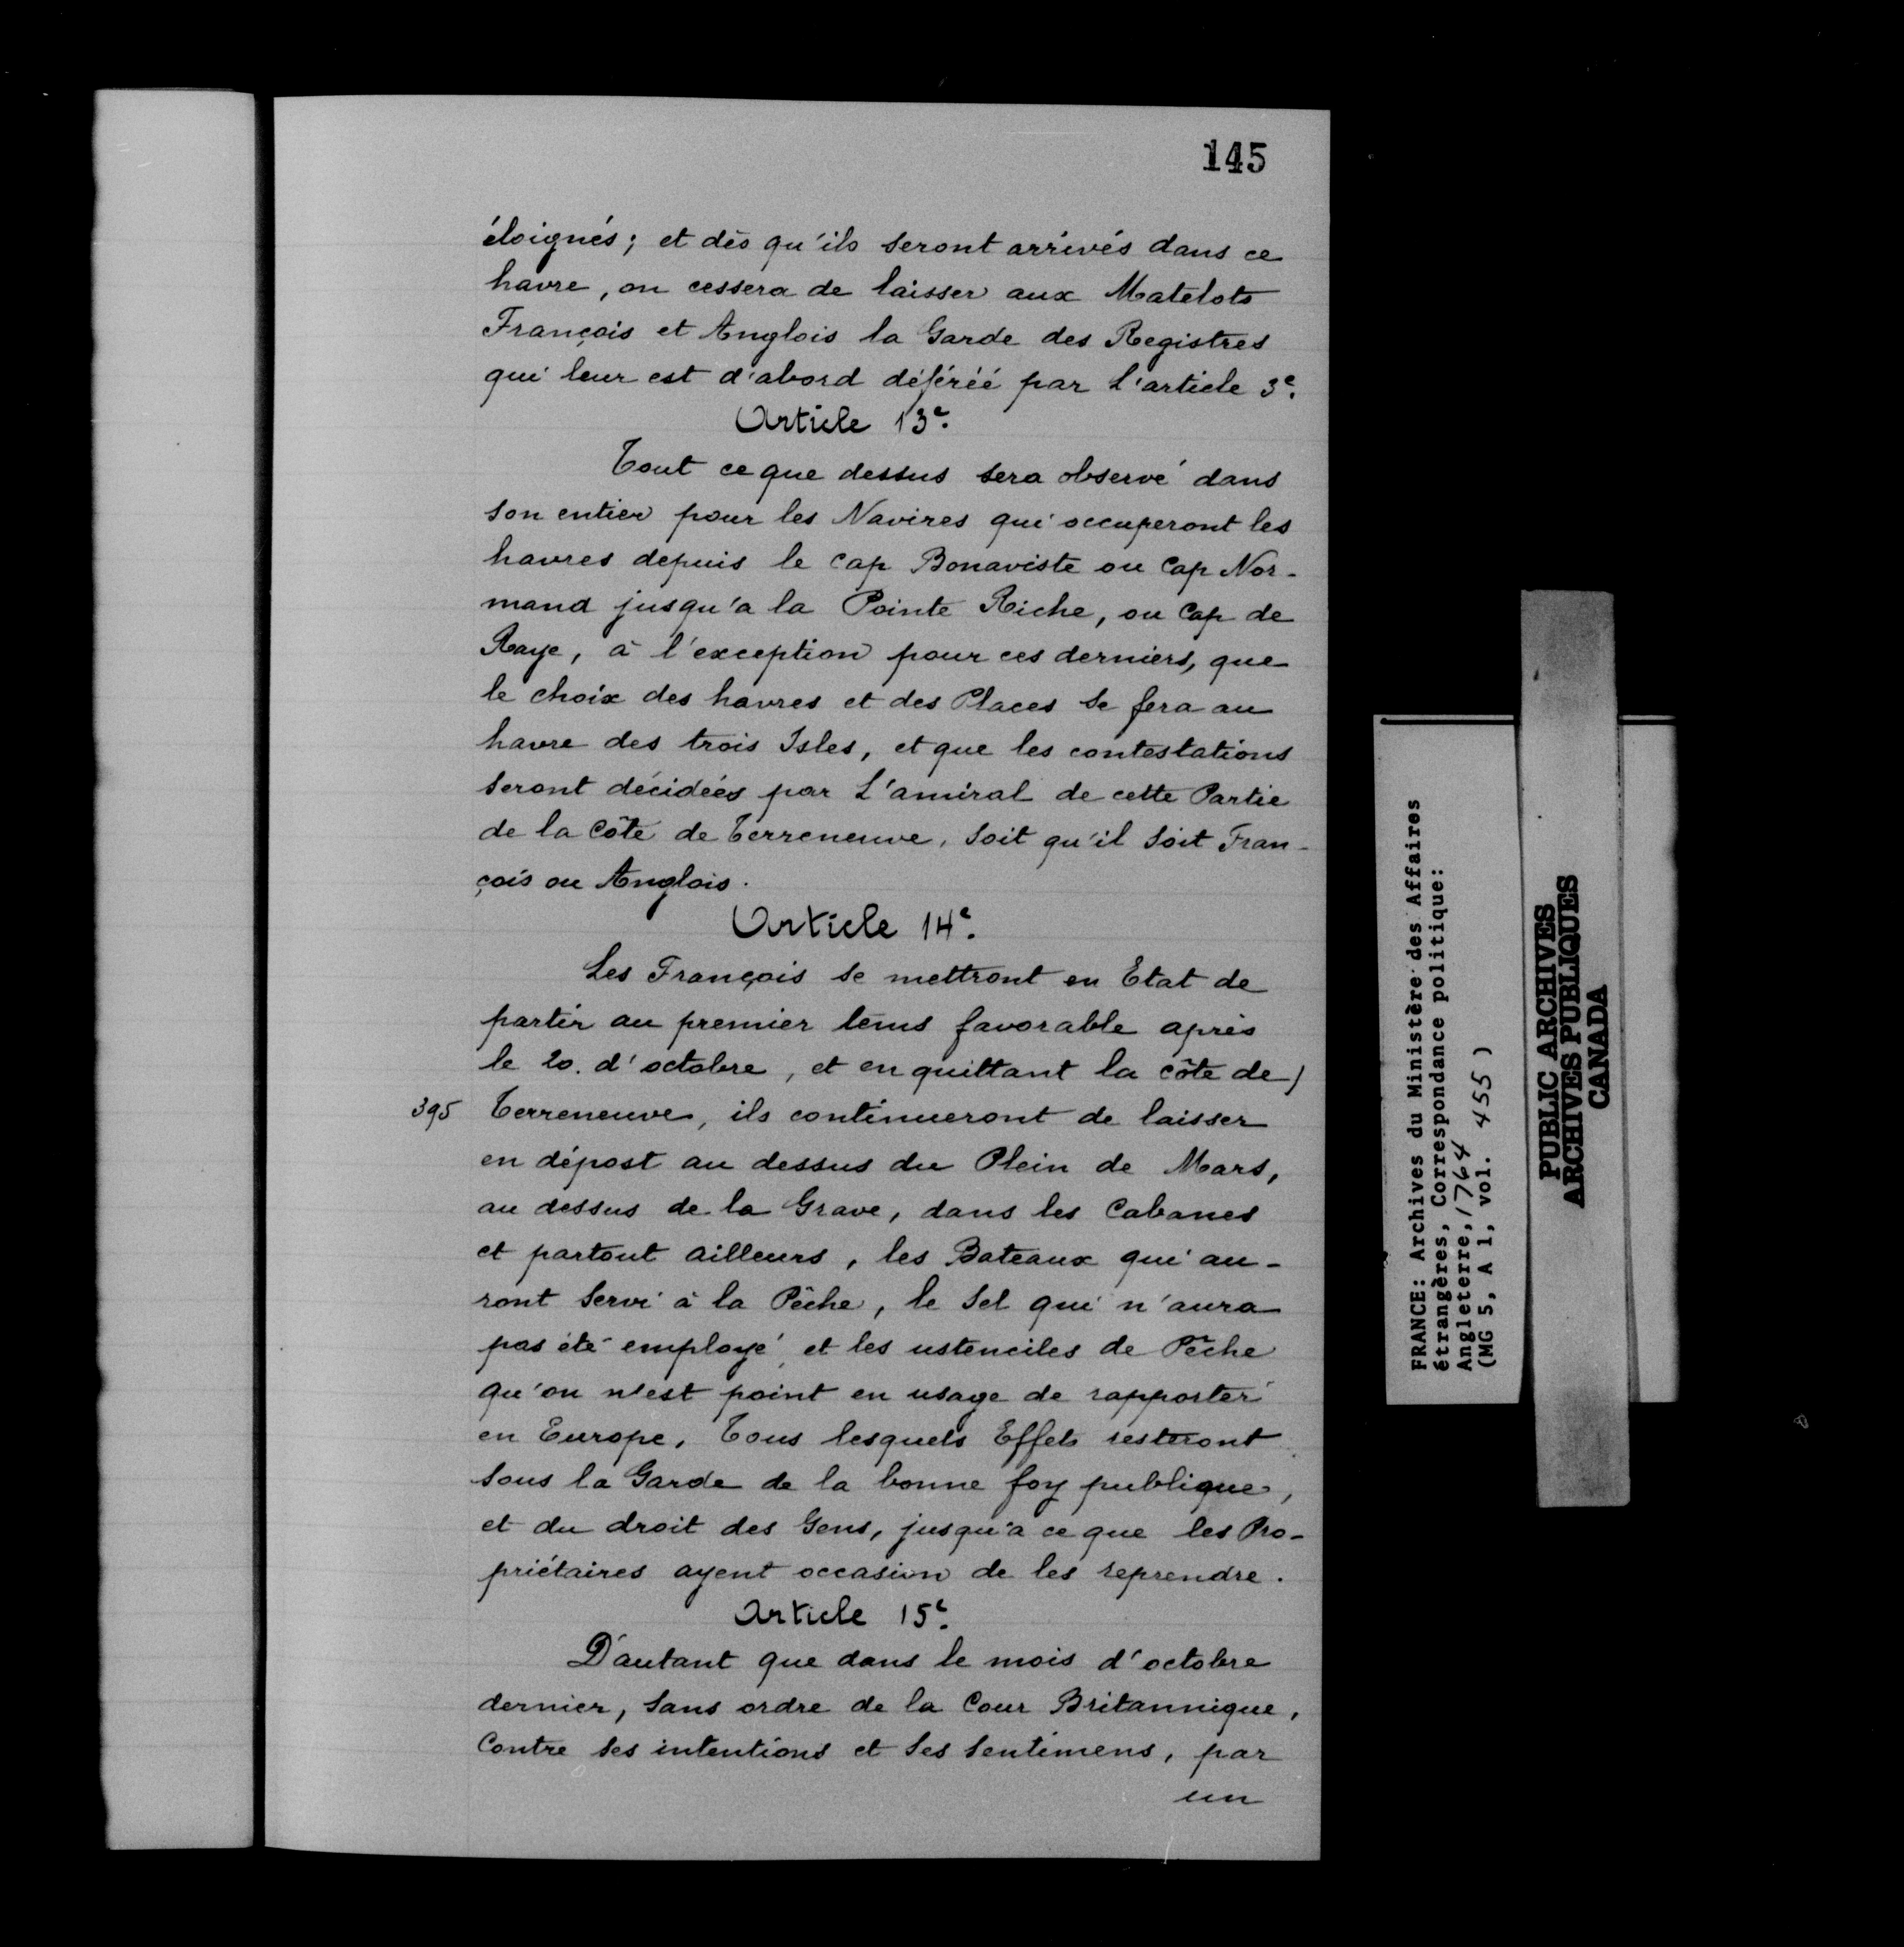 145
éloignés; et dès qu'ils seront arrivés dans ce
havre, on cessera de laisser aux Matelots
François et Anglois la Garde des Registres
qui leur est d'abord déféréé par L'article 3e.
Article 13e.
Tout ce que dessus sera observé dans
son entier pour les Navires qui occuperont les
havres depuis le Cap Bonaviste ou Cap Nor-
mand jusqu'a la Pointe Riche, ou Cap de
Raye, à l'exception pour ces derniers, que
le choix des havres et des Places se fera au
havre des trois Isles, et que les contestations
seront décidées par L'amiral de cette Partie
de la Côte de Terreneuve, soit qu'il soit Fran-
çois ou Anglois.
Article 14e.
Les François se mettront en Etat de
partir au premier tems favorable après
le 20. d'octobre, et en quittant la côte de)
395 Terreneuve, ils continueront de laisser
en dépost au dessus du Plein de Mars,
au dessus de la Grave, dans les Cabanes
et partout ailleurs, les Bateaux qui au-
ront servi à la Pêche, le Sel qui n'aura
pas été employé, et les ustenciles de Pêche
qu'on n'est point en usage de rapporter
en Europe, Tous lesquels Effets resteront
sous la Garde de la bonne foy publique,
et du droit des Gens, jusqu'a ce que les Pro-
priétaires ayent occasion de les reprendre.
Article 15e.
D'autant que dans le mois d'octobre
dernier, sans ordre de la Cour Britannique,
Contre ses intentions et ses sentimens, par
un
FRANCE: Archives du Ministère des Affaires
étrangères, Correspondance politique:
Angleterre, 1764
(MG 5, A 1, vol. 455)
PUBLIC ARCHIVES
ARCHIVES PUBLIQUES
CANADA